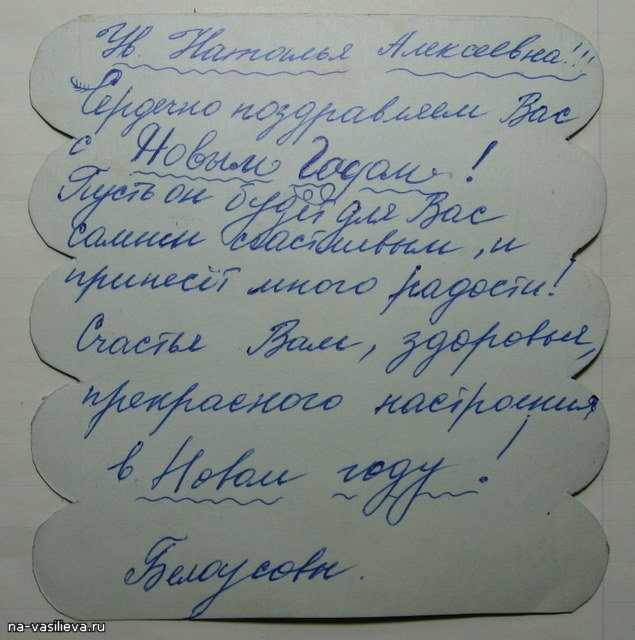 Ув. Наталья Алексеевна!!!
Сердечно поздравляем Вас
с Новым Годом!
Пусть он будет для Вас
самым счастливым, и
принесёт много радости!
Счастья Вам, здоровья,
прекрасного настроения
в Новом году!
Белоусовы.
na-vasilieva.ru